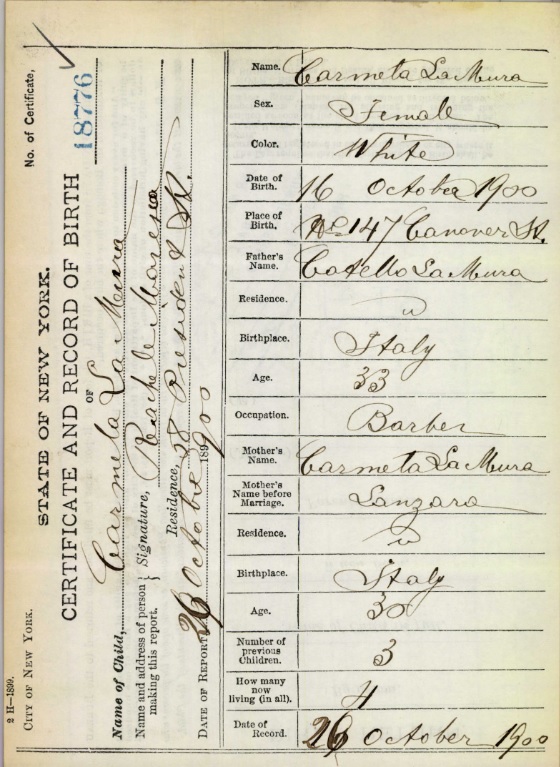 2 H-1899.
CITY OF NEW YORK.
No. of Certificate,
18776
STATE OF NEW YORK.
CERTIFICATE AND RECORD OF BIRTH
OF
Name of Child, Carmela La Mura
Name and address of person making this report. } Signature, Rachele
Residence, 28 President St.
DATE OF REPORT, 26 October 1891900
Name. Carmela La Mura
Sex. Female
Color. White
Date of Birth. 16 October 1900
Place of Birth. No 147 Conover St.
Father's Name. La Mura
Residence. "
Birthplace. Italy
Age. 33
Occupation. Barber
Mother's Name. Carmela La Mura
Mother's Name before Marriage. Lanzara
Residence. "
Birthplace. Italy
Age. 30
Number of previous Children. 3
How many now living (in all). 4
Date of Record. 26 October 1900